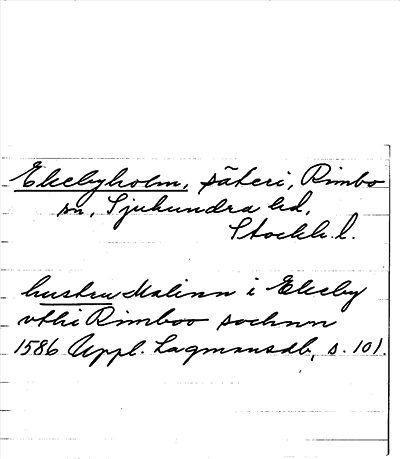 Ekebyholm, säteri, Rimbo
sn, Sjuhundra hd,
Stockh. l.
hustru Malinn i Ekeby
vthi Rimboo sochnn
1586 Uppl. Lagmansdb, s. 101.